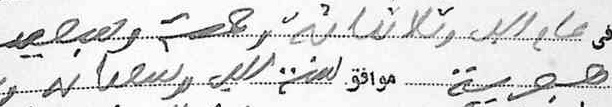 في عام الف وثلاثمائة وخمسة وسبعين
هجرية موافق لسنة الف وتسعمائة و